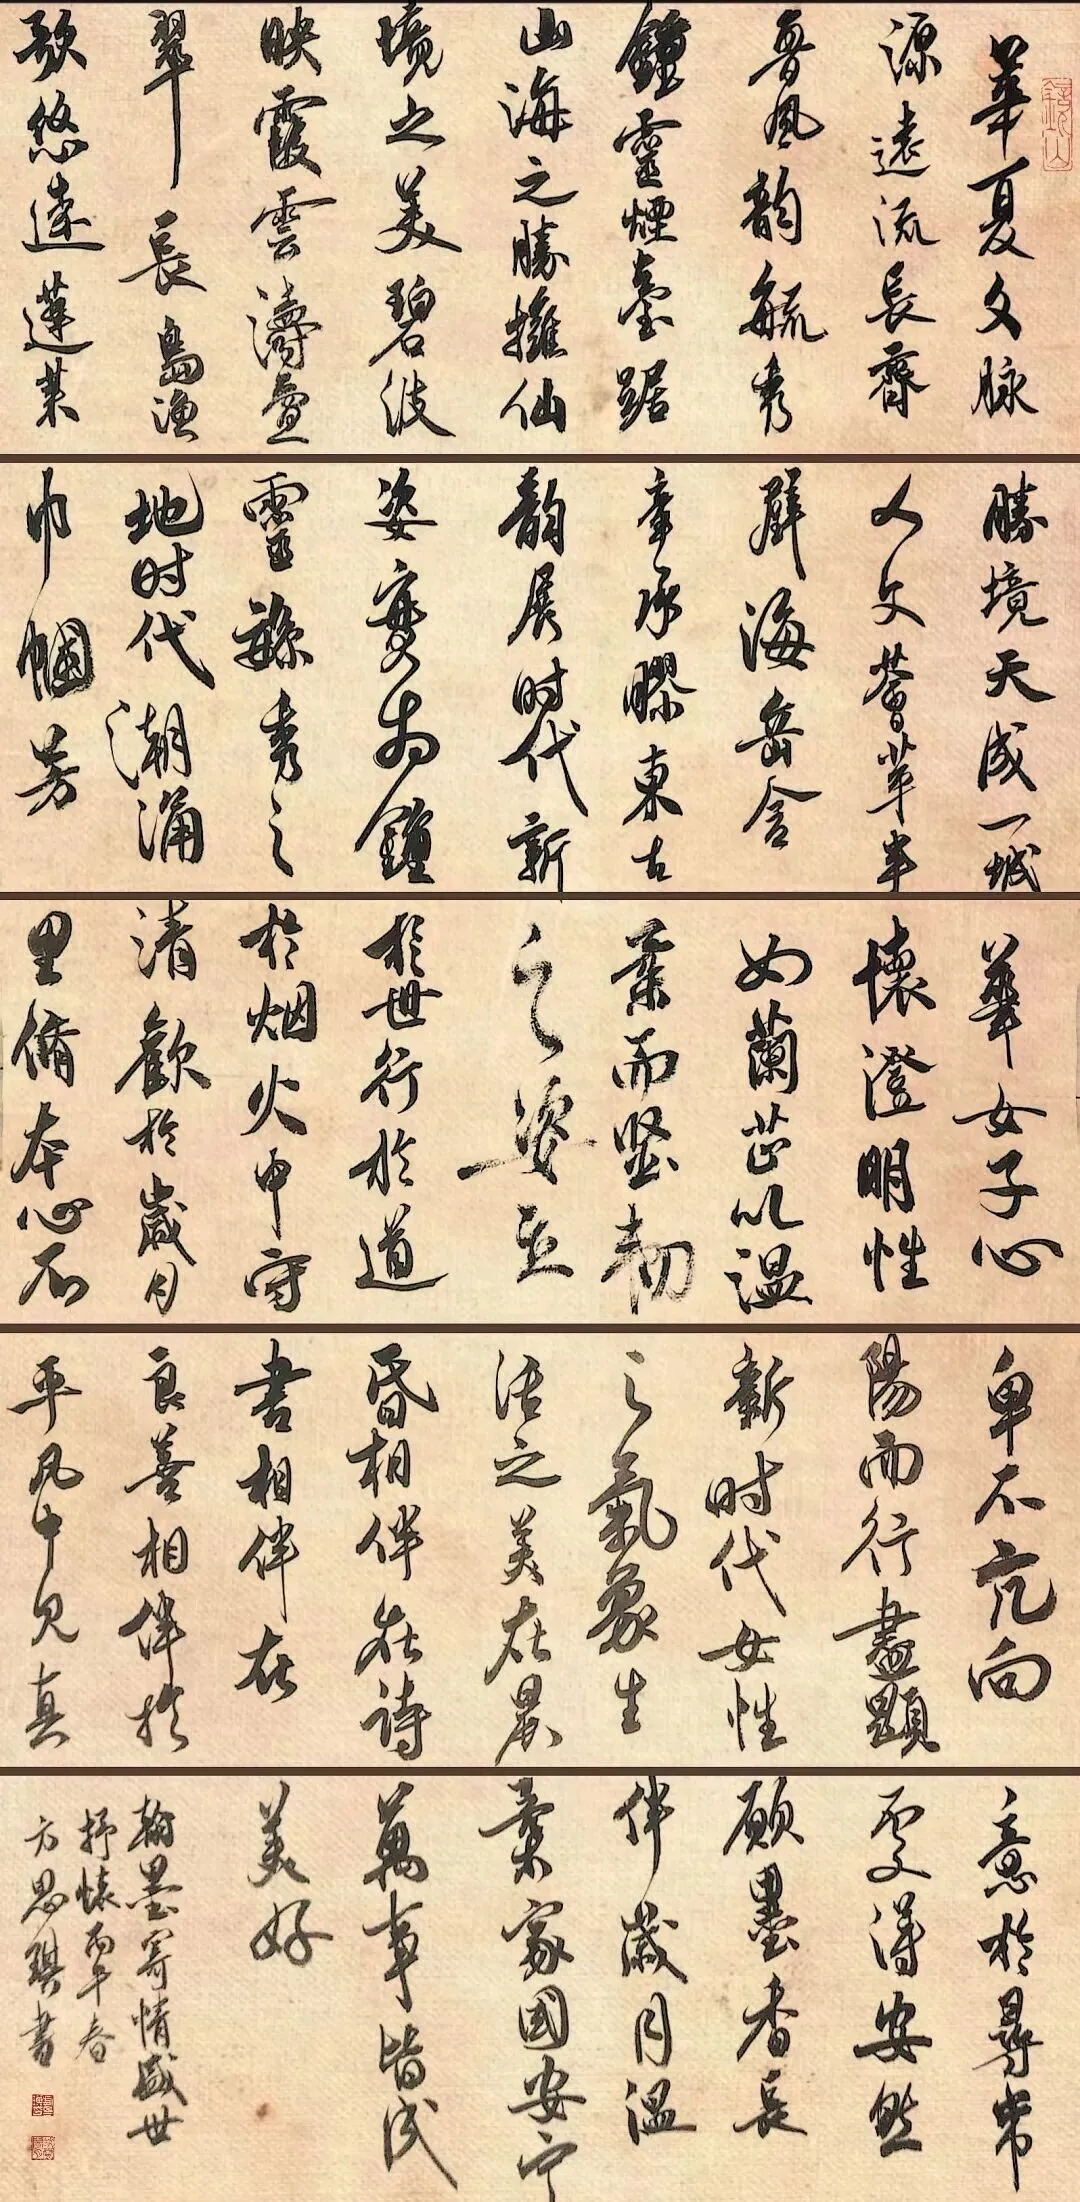 華夏文脉
源遠流長齊
魯風韵毓秀
鐘靈煙臺踞
山海之勝擁仙
境之美碧波
映霞雲濤疊
翠長島漁
歌悠遠蓬萊
勝境天成一城
人文薈萃半
壁海岳含
章承膠東古
韵展时代新
姿嶤為鐘
靈毓秀之
地时代潮涌
巾幗芳
華女子心
懷澄明性
如蘭芷以温
柔而堅韧
之姿立
於世行於道
於烟火中守
清歡於歲月
里脩本心不
卑不亢向
陽而行盡顯
新时代女性
之氣象生
活之美在晨
昏相伴在詩
書相伴在
良善相伴於
平凡中見真
意於尋常
處得安然
願墨香長
伴歲月温
柔家國安宁
萬事皆成
美好
翰墨寄情盛世
抒懷丙午春
方思琪書